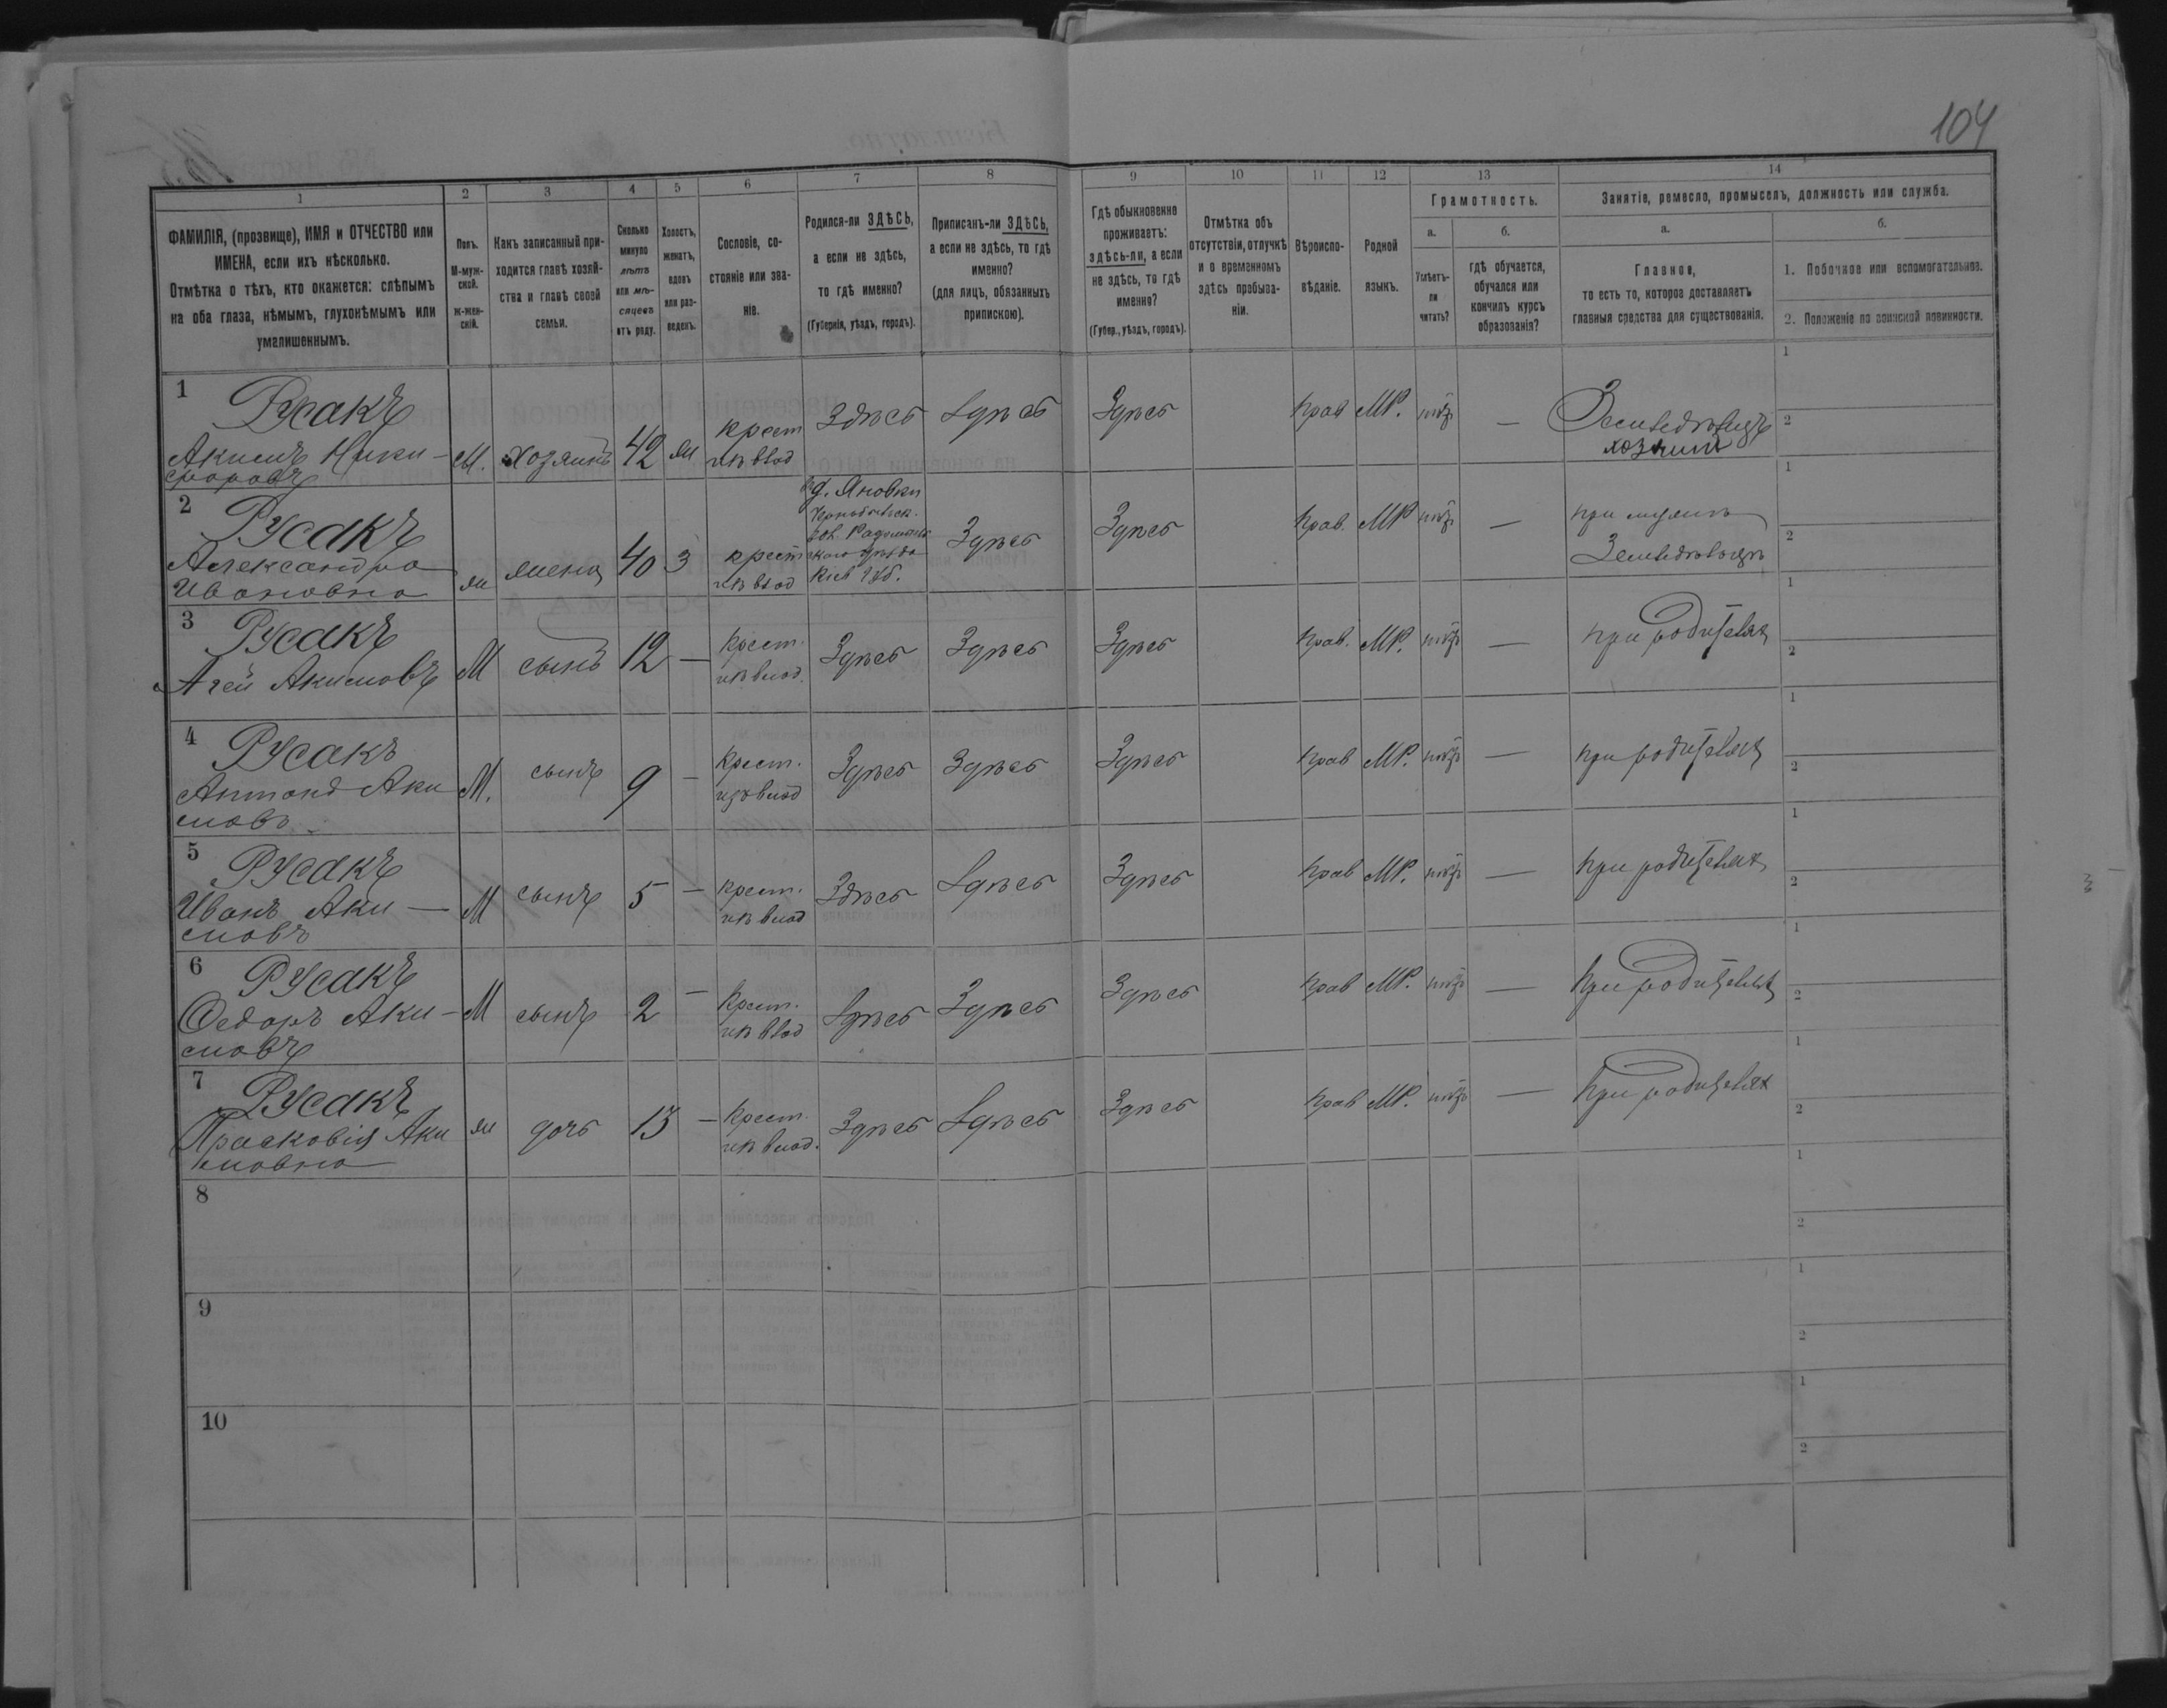 104
1 2 3 4 5 6 7 8 9 10 11 12 13 14
ФАМИЛІЯ, (прозвище), ИМЯ и ОТЧЕСТВО или
ИМЕНА, если ихъ нѣсколько.
Отмѣтка о тѣхъ, кто окажется: слѣпымъ
на оба глаза, нѣмымъ, глухонѣмымъ или
умалишеннымъ.
Полъ.
М-муж-
ской.
Ж-жен-
скій.
Какъ записанный при-
ходится главѣ хозяй-
ства и главѣ своей
семьи.
Сколько
минуло
лѣтъ
или мѣ-
сяцевъ
отъ роду.
Холостъ,
женатъ,
вдовъ
или раз-
веденъ.
Сословіе, со-
стояніе или зва-
ніе.
Родился-ли ЗДѢСЬ,
а если не здѣсь,
то гдѣ именно?
(Губернія, уѣздъ, городъ).
Приписанъ-ли ЗДѢСЬ,
а если не здѣсь, то гдѣ
именно?
(для лицъ, обязанныхъ
припискою).
Гдѣ обыкновенно
проживаетъ:
здѣсь-ли, а если
не здѣсь, то гдѣ
именно?
(Губер., уѣздъ, городъ).
Отмѣтка объ
отсутствіи, отлучкѣ
и о временномъ
здѣсь пребыва-
ніи.
Вѣроиспо-
вѣданіе.
Родной
языкъ.
Грамотность.
а.
Умѣетъ-
ли
читать?
б.
гдѣ обучается,
обучался или
кончилъ курсъ
образованія?
Занятіе, ремесло, промыселъ, должность или служба.
а.
Главное,
то есть то, которое доставляетъ
главныя средства для существованія.
б.
1. Побочное или вспомогательное.
2. Положеніе по воинской повинности.
1
Русакъ
Акимъ Ники-
форовъ
М. хозяинъ 42 ж
крест
из влад
Здѣсь Здѣсь Здѣсь Прав МР. нѣтъ —
Земледѣлецъ
хозяинъ
1
2
2
Русакъ
Александра
Ивановна
ж жена 40 з
крест
из влад
д. Яновки
Чернобыльск.
вол. Радомысль
скаго уѣзда
Кіев Губ.
Здѣсь Здѣсь Прав. МР нѣтъ —
при мужѣ
Земледѣлецъ
1
2
3
Русакъ
Агей Акимовъ
М сынъ 12 —
Крест.
из влад.
Здѣсь Здѣсь Здѣсь Прав. МР. нѣтъ — при родителях
1
2
4
Русакъ
Антонъ Аки
мовъ
М. сынъ 9 —
Крест.
изъ влад
Здѣсь Здѣсь Здѣсь Прав МР. нѣтъ — при родителях
1
2
5
Русакъ
Иванъ Аки —
мовъ
М сынъ 5 —
крест.
из влад
Здѣсь Здѣсь Здѣсь Прав МР. нѣтъ — при родителях
1
2
6
Русакъ
Федоръ Аки —
мовъ
М сынъ 2 —
Крест.
из влад
Здѣсь Здѣсь Здѣсь Прав МР. нѣтъ — При родителях
1
2
7
Русакъ
Прасковія Аки
мовна
ж дочь 13 —
Крест.
из влад.
Здѣсь Здѣсь Здѣсь Прав МР. нѣтъ — При родителях
1
2
8
1
2
9
1
2
10
1
2